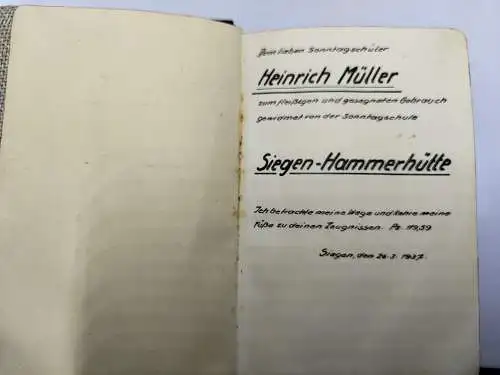 Dem lieben Sonntagschüler
Heinrich Müller
zum fleißigen und gesegneten Gebrauch
gewidmet von der Sonntagschule
Siegen-Hammerhütte
Ich betrachte meine Wege und kehre meine
Füße zu deinen Zeugnissen. Ps. 119,59
Siegen, den 26.3.1937